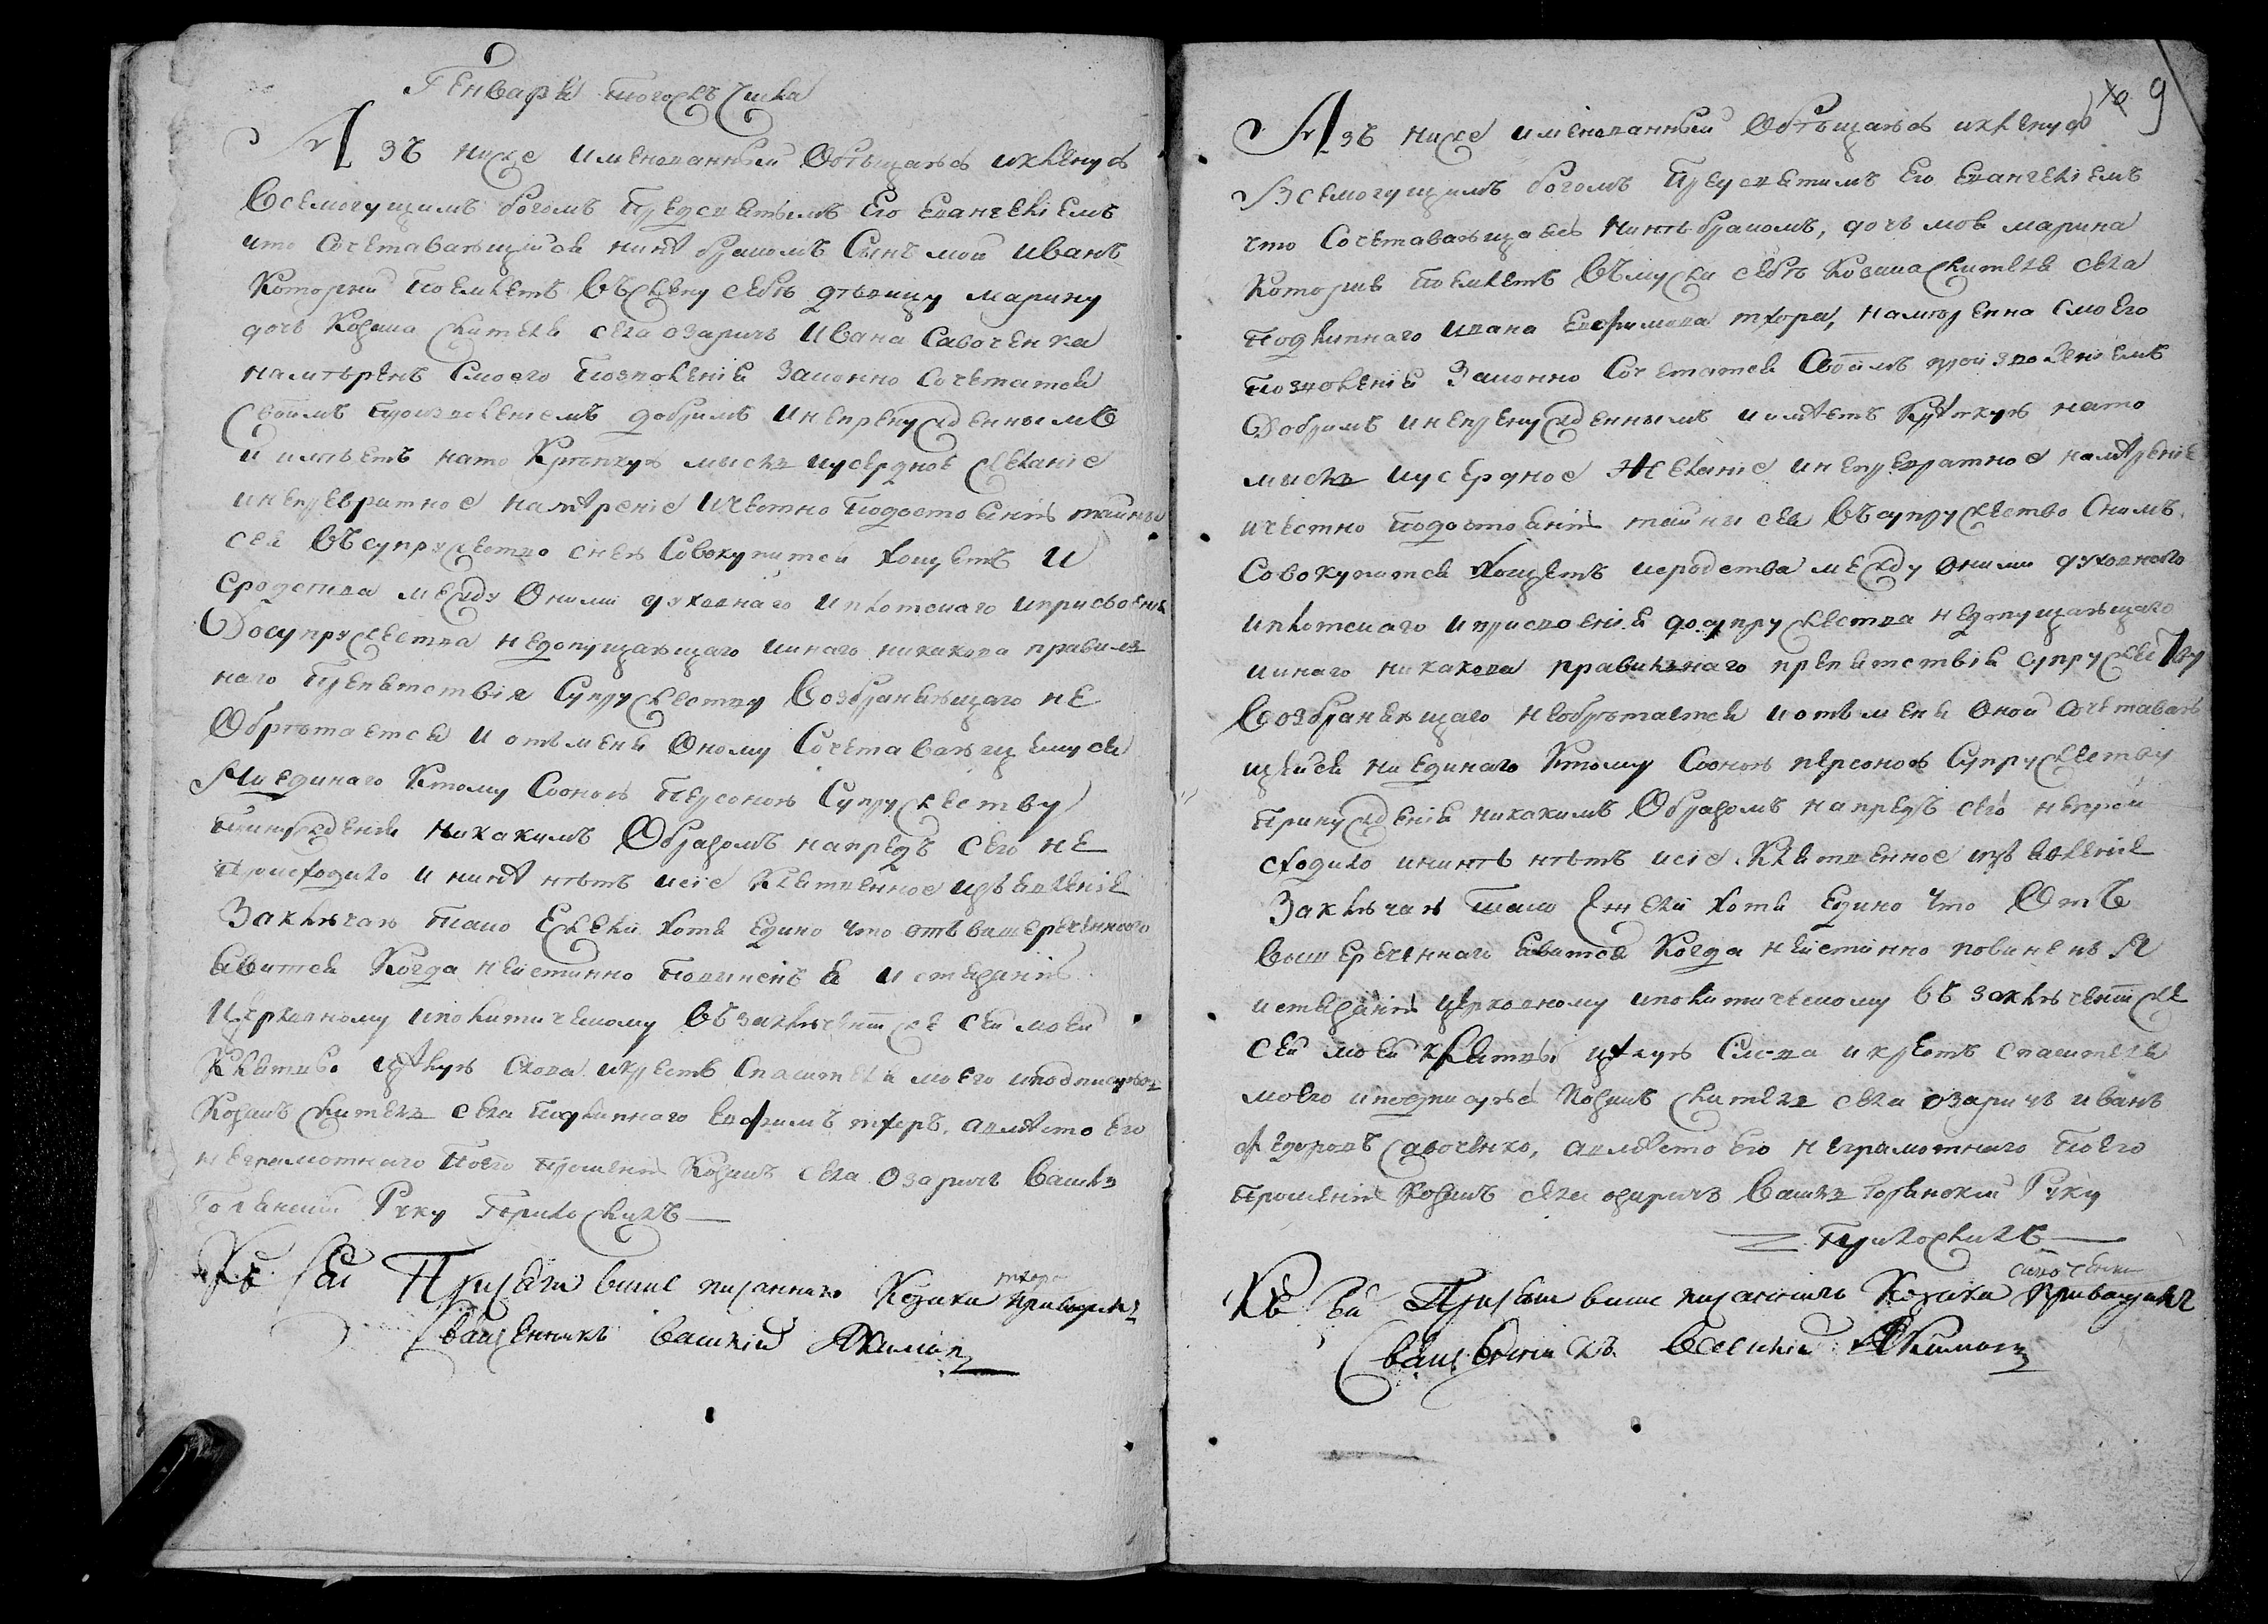 Генваря того ж числа
Азъ ниже именованный Обѣщаюсь и кленусь
Всемогущимъ богомъ Предсвятымъ Его Евангелиемъ
что Сочетавающийся нинѣ бракомъ Синъ мой иванъ
Которий Поемлетъ Въжену себѣ дѣвицу марину
дочь Козака жителя села озаричъ Ивана Савоченка
намѣренъ Смоего Позволенія Законно Сочетатся
Своимъ Произволениемъ добримъ инепренужденнымъ
и имѣетъ нато Крѣпкую мысль иусердное желаніе
инепревратное намѣреніе ичестно Подостоянію тайны
сея Въсупружество снею Совокупится хощетъ И
сродства между Оними духовнаго иплотскаго иприсвоения
Досупружества недопущающаго иинаго никакова правиль
наго Препятствія Супружеству Возбраняющаго не
Обрѣтается и отъ меня Оному Сочетавающемуся
Ни единаго Ктому Сооною Персоною Супружеству
принужденія никакимъ Образомъ напредъ сего не
Происходило и нинѣ нѣтъ исіе Клятвенное изъявленіе
Заключаю тако Ежели хотя Едино что отъ вишереченнаго
Явится Когда неистинно Повиненъ я истязанію
Церковному иполитическому Въ заключеніи же сей моей
Клятвы цѣлую Слова икрестъ Спасителя моего иподписуюсь
Козакъ житель села Подлипнаго Евфимъ тхоръ, авмѣсто его
неграмотнаго Поего прошенію Козакъ села Озаричъ Василь
Голянский Руку Приложилъ
Къ сей Присяги више писаннаго Козака тхора Приводилъ
Священникъ Василий Якимовъ
9
Азъ ниже именованный Обѣщаюсь икленусь
Всемогущимъ богомъ Предсвятимъ Его Евангелиемъ
что Сочетавающаясь нинѣ бракомъ, дочь моя марина
Которая Поемлетъ Въмужи себѣ Козака жителя села
Подлипнаго ивана Евфимова тхора, намѣренна Смоего
Позволенія Законно Сочетатся Своимъ произволениемъ
Добримъ инепренужденнымъ иимѣетъ Крѣпкую нато
мысль иусердное Желаніе инепревратное намѣреніе
ичестно Подостоянію тайны сея Въсупружество Снимъ
Совокупится Хощетъ исродства между Оними духовнаго
иплотскаго иприсвоенія досупружества недопущающаго
иинаго никакова правильнаго препятствія супружеству
Возбраняющаго необрѣтается иотъ меня Оной Сочетаваю
щейся ни единаго Ктому Сооною персоною Супружеству
Принужденія никакимъ Образомъ напредъ сего непрои
сходило ининѣ нѣтъ исіе Клятвенное изъявленіе
Заключаю тако Ежели хотя Едино что Отъ
вишереченнаго явится Когда неистинно повиненъ Я
истязанію церковному иполитическому въ заключеніи же
сей моей клятвы цѣлую Слова икрестъ спасителя
моего иподписуюсь Козакъ житель села озаричъ иванъ
Федоровъ Савоченко, авмѣсто его неграмотнаго Поего
Прошенію Козакъ села озаричъ Василь Голянский Руку
Приложилъ
Къ сей Присяги више писаннаго Козака Савоченка Приводилъ
Священникъ Василий Якимовъ